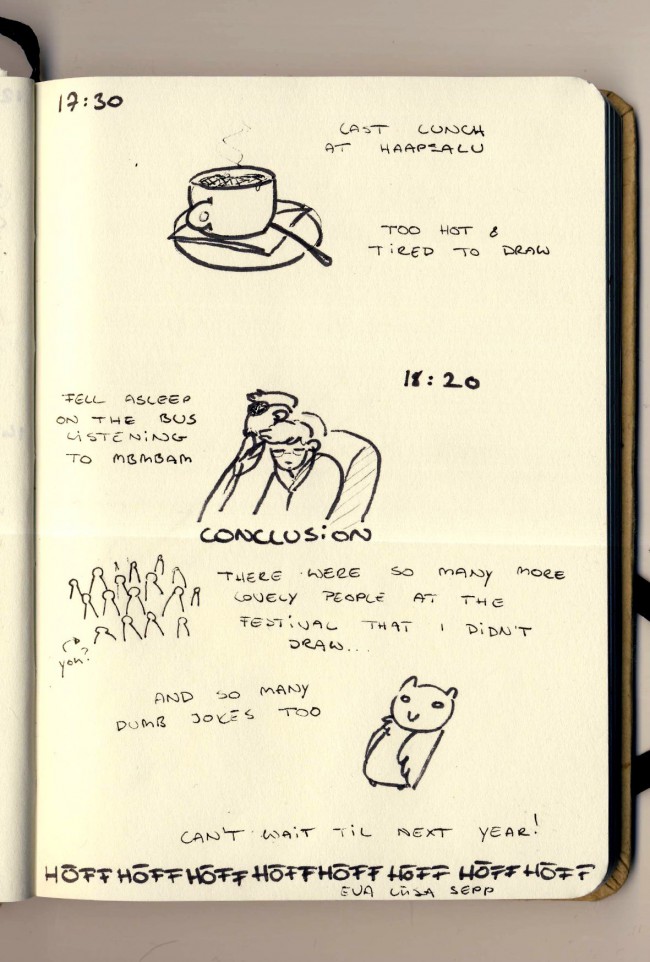 17:30
LAST LUNCH
AT HAAPSALU
TOO HOT &
TIRED TO DRAW
18:20
FELL ASLEEP
ON THE BUS
LISTENING
TO MBMBAM
CONCLUSION
THERE WERE SO MANY MORE
LOVELY PEOPLE AT THE
FESTIVAL THAT I DIDN'T
DRAW...
you?
AND SO MANY
DUMB JOKES TOO
CAN'T WAIT TIL NEXT YEAR!
HÕFF HÕFF HÕFF HÕFF HÕFF HÕFF HÕFF HÕFF
EVA LIISA SEPP